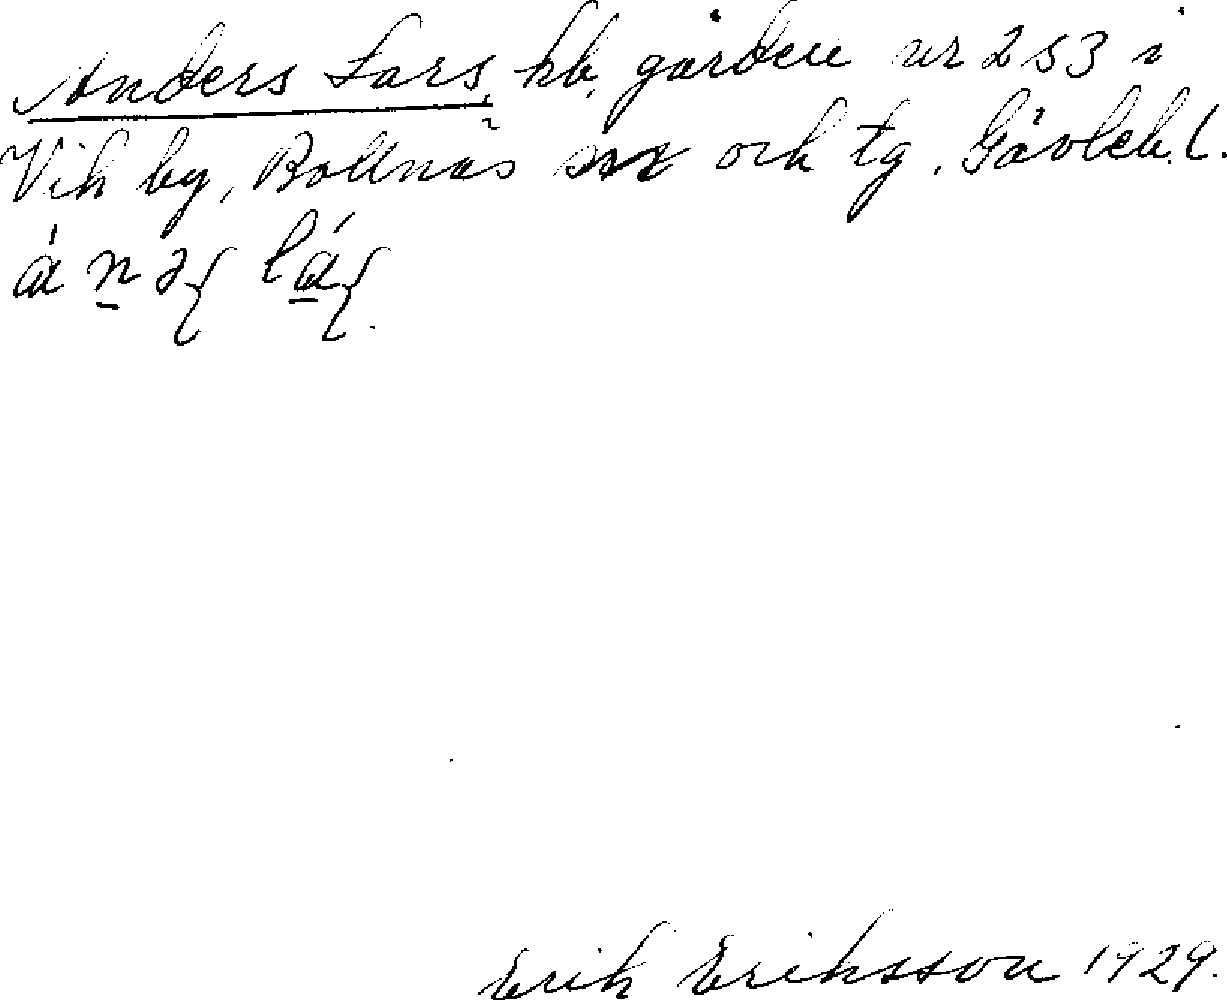 Anders Lars, hb. gården nr 2 S3 i
Vik by, Bollnäs sn och tg. Gävleb. l.
a᷄ n̠ ə lá̠
Erik Eriksson 1929.